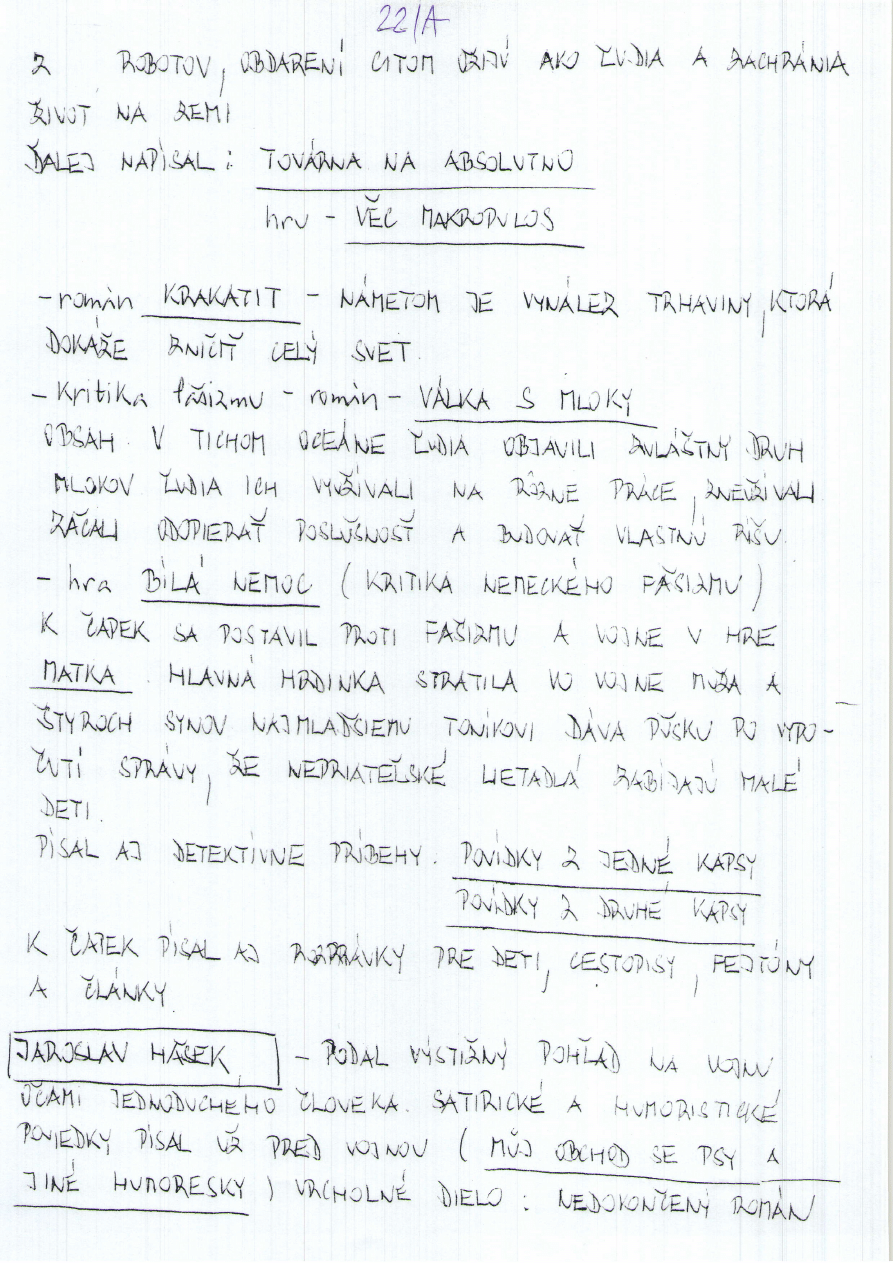 22/A
2 ROBOTOV, OBDARENÍ CITOM OŽIJÚ AKO ĽUDIA A ZACHRÁNIA
ŽIVOT NA ZEMI
ĎALEJ NAPÍSAL: TOVÁRNA NA ABSOLUTNO
hru - VĚC MAKROPULOS
- román KRAKATIT - NÁMETOM JE VYNÁLEZ TRHAVINY, KTORÁ
DOKÁŽE ZNIČIŤ CELÝ SVET.
- Kritika fašizmu - román - VÁLKA S MLOKY
OBSAH. V TICHOM OCEÁNE ĽUDIA OBJAVILI ZVLÁŠTNY DRUH
MLOKOV. ĽUDIA ICH VYUŽÍVALI NA RÔZNE PRÁCE, ZNEUŽÍVALI.
ZAČALI ODOPIERAŤ POSLUŠNOSŤ A BUDOVAŤ VLASTNÚ RÍŠU.
- hra BÍLÁ NEMOC (KRITIKA NEMECKÉHO FAŠIZMU)
K ČAPEK SA POSTAVIL PROTI FAŠIZMU A VOJNE V HRE
MATKA. HLAVNÁ HRDINKA STRATILA VO VOJNE MUŽA A
ŠTYROCH SYNOV NAJMLADŠIEMU TONÍKOVI DÁVA PUŠKU PO VYPO-
ČUTÍ SPRÁVY, ŽE NEPRIATEĽSKÉ LIETADLÁ ZABÍJAJÚ MALÉ
DETI.
PÍSAL AJ DETEKTÍVNE PRÍBEHY. POVÍDKY Z JEDNÉ KAPSY
POVÍDKY Z DRUHÉ KAPSY
K ČAPEK PÍSAL AJ ROZPRÁVKY PRE DETI, CESTOPISY, FEJTÓNY
A ČLÁNKY
JAROSLAV HAŠEK - PODAL VÝSTIŽNÝ POHĽAD NA VOJNU
OČAMI JEDNODUCHÉHO ČLOVEKA. SATIRICKÉ A HUMORISTICKÉ
POVIEDKY PÍSAL UŽ PRED VOJNOU (MŮJ OBCHOD SE PSY A
JINÉ HUMORESKY) VRCHOLNÉ DIELO: NEDOKONČENÝ ROMÁN